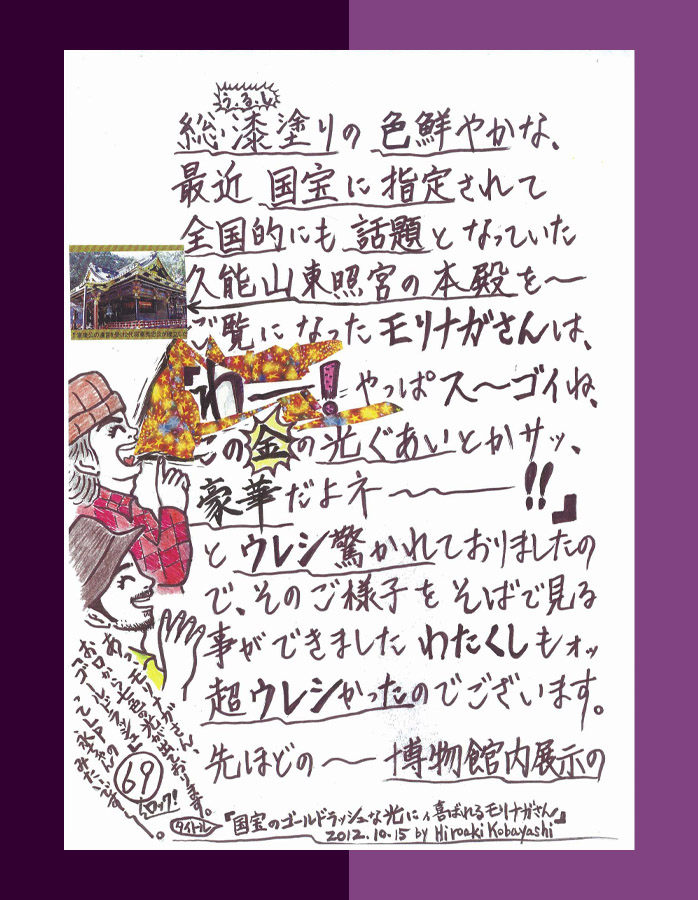 うるし
総漆塗りの 色鮮やかな、
最近 国宝に指定されて
全国的にも 話題となっていた
久能山東照宮の本殿を〜
ご覧になったモリナガさんは、
『わー!やっぱスーゴイね、
この金の光ぐあいとかサッ、
豪華だよネ〜!!』
と ウレシ驚かれておりましたの
で、そのご様子を そばで見る
事ができました わたくしもオッ
超ウレシかったのでございます。
先ほどの〜 博物館内展示の
あっ、モリナガさん、
お口から七色の光が出ております。
「ゴールドラッシュ」
永ちゃん
みたいです〜。
69
ロック!
タイトル
『国宝のゴールドラッシュな光にィ喜ばれるモリナガさん』
2012.10.15 by Hiroaki Kobayashi